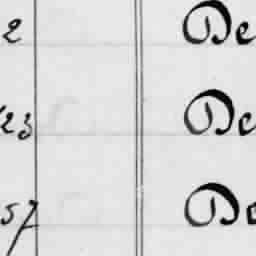 2 De
23 De
57 De